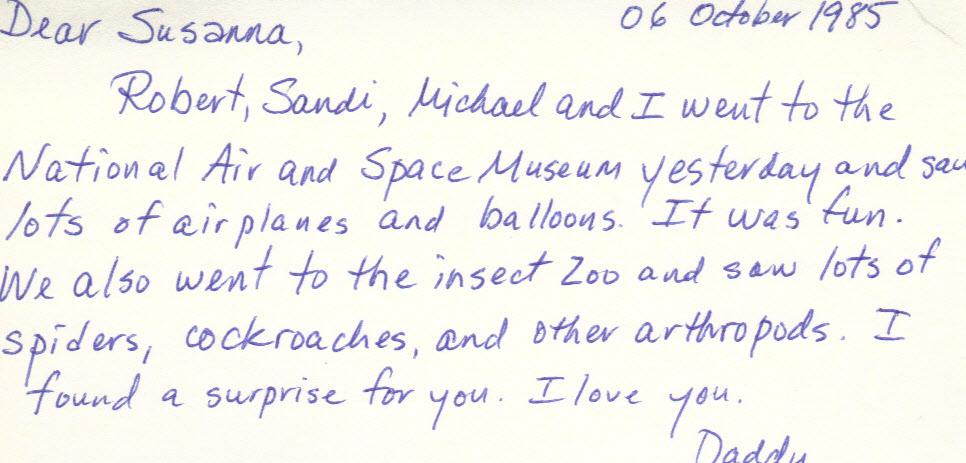 06 October 1985
Dear Susanna,
Robert, Sandi, Michael and I went to the
National Air and Space Museum yesterday and saw
lots of airplanes and balloons. It was fun.
We also went to the insect Zoo and saw lots of
spiders, cockroaches, and other arthropods. I
found a surprise for you. I love you.
Daddy